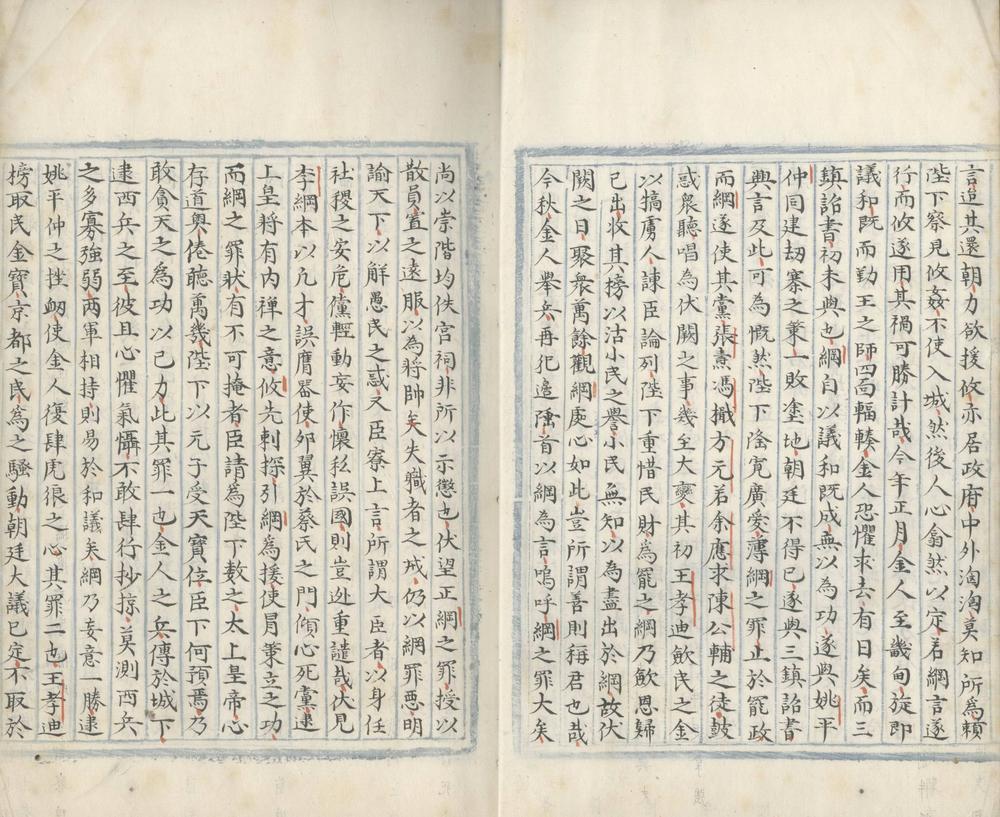 言造其還朝力欲援攸亦居政府中外洶洶莫知所為賴
陛下察見攸姦不使入城然後人心翕然以定若綱言遂
行而攸遂用其禍可勝計哉今年正月金人至畿甸旋即
議和既而勤王之師四面輻輳金人恐懼求去有日矣而三
鎮詔書初未與也綱自以議和既成無以為功遂與姚平
仲同建刼寨之策一敗塗地朝廷不得已遂與三鎮詔書
興言及此可為慨然陛下隆寬廣愛薄綱之罪止於罷政
而綱遂使其黨張燾馮檝方元若余應求陳公輔之徒鼓
惑衆聽唱為伏闕之事幾至大變其初王孝迪歛民之金
以犒虜人諫臣論列陛下重惜民財為罷之綱乃歛恩歸
己出收其榜以沽小民之譽小民無知以為盡出於綱故伏
闕之日聚衆萬餘觀綱處心如此豈所謂善則稱君也哉
今秋金人舉兵再犯邉陲首以綱為言嗚呼綱之罪大矣
尚以崇階均佚宫祠非所以示懲也伏望正綱之罪授以
散員置之遠服以為將帥失職者之戒仍以綱罪惡明
諭天下以解愚民之惑又臣寮上言所謂大臣者以身任
社稷之安危儻輕動妄作懷私誤國則豈逃重譴哉伏見
李綱本以凡才誤膺器使夘翼於蔡氏之門傾心死黨逮
上皇將有内禪之意攸先刺探引綱為援使冒䇿立之功
而綱之罪狀有不可掩者臣請為陛下数之太上皇帝心
存道奥倦聽萬幾陛下以元子受天寳位臣下何預焉乃
敢貪天之為功以已力此其罪一也金人之兵傅於城下
逮西兵之至彼且心懼氣懾不敢肆行抄掠莫測西兵
之多寡強弱两軍相持則易於和議矣綱乃妄意一勝逮
姚平仲之挫衂使金人復肆虎狼之心其罪二也王孝迪
榜取民金寳京都之民為之騷動朝廷大議已定不取於